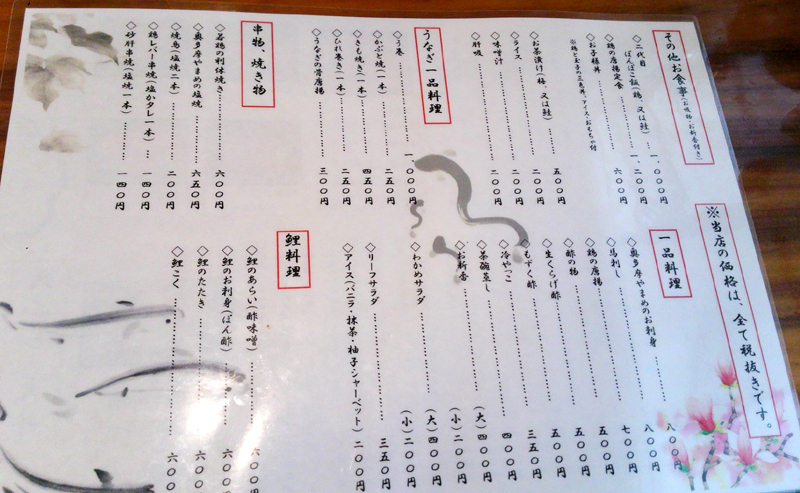 その他お食事(お吸物・お新香付き)
◇二代目
ばんばこ飯(鶏、又は鮭)…一、〇〇〇円
◇鶏の唐揚定食………一、二〇〇円
◇お子様丼………六〇〇円
※鶏と玉子の三色丼・アイス・おもちゃ付
◇お茶漬け(梅、又は鮭)………五〇〇円
◇ライス………二〇〇円
◇味噌汁………二〇〇円
◇肝吸………二〇〇円
うなぎ一品料理
◇う巻………一、〇〇〇円
◇かぶと焼(一本)………二五〇円
◇きも焼き(一本)………四五〇円
◇ひれ巻き(一本)………二五〇円
◇うなぎの骨唐揚………三〇〇円
串物、焼き物
◇若鶏の利休焼き………六〇〇円
◇奥多摩やまめの塩焼………六五〇円
◇焼鳥(塩焼二本)………二〇〇円
◇鶏レバー串焼(塩かタレ一本)…一四〇円
◇砂肝串焼(塩焼一本)………一四〇円
※当店の価格は、全て税抜きです。
一品料理
◇奥多摩やまめのお刺身………八〇〇円
◇馬刺し………八〇〇円
◇鶏の唐揚………七〇〇円
◇酢の物………五〇〇円
◇生くらげ酢………五〇〇円
◇もずく酢………五〇〇円
◇冷やっこ………三五〇円
◇茶碗蒸し………四〇〇円
◇お新香………(大)四〇〇円
(小)二〇〇円
◇わかめサラダ………(大)四〇〇円
(小)二〇〇円
◇リーフサラダ………三五〇円
◇アイス(バニラ・抹茶・柚子シャーベット)二〇〇円
鯉料理
◇鯉のあらい(酢味噌)………六〇〇円
◇鯉のお刺身(ぽん酢)………六〇〇
◇鯉のたたき………六〇〇
◇鯉こく………六〇〇